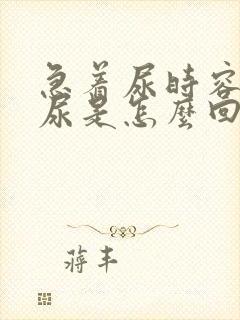 急着尿時容
尿是怎麼回
蔣丰